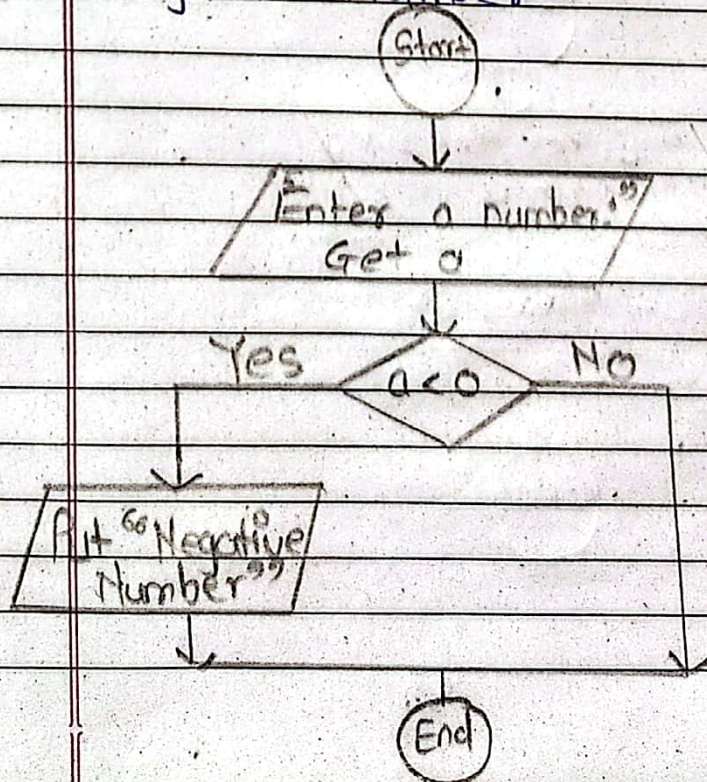 Start
"Enter a number:"
Get a
Yes
a<0
No
Put "Negative
Number"
End